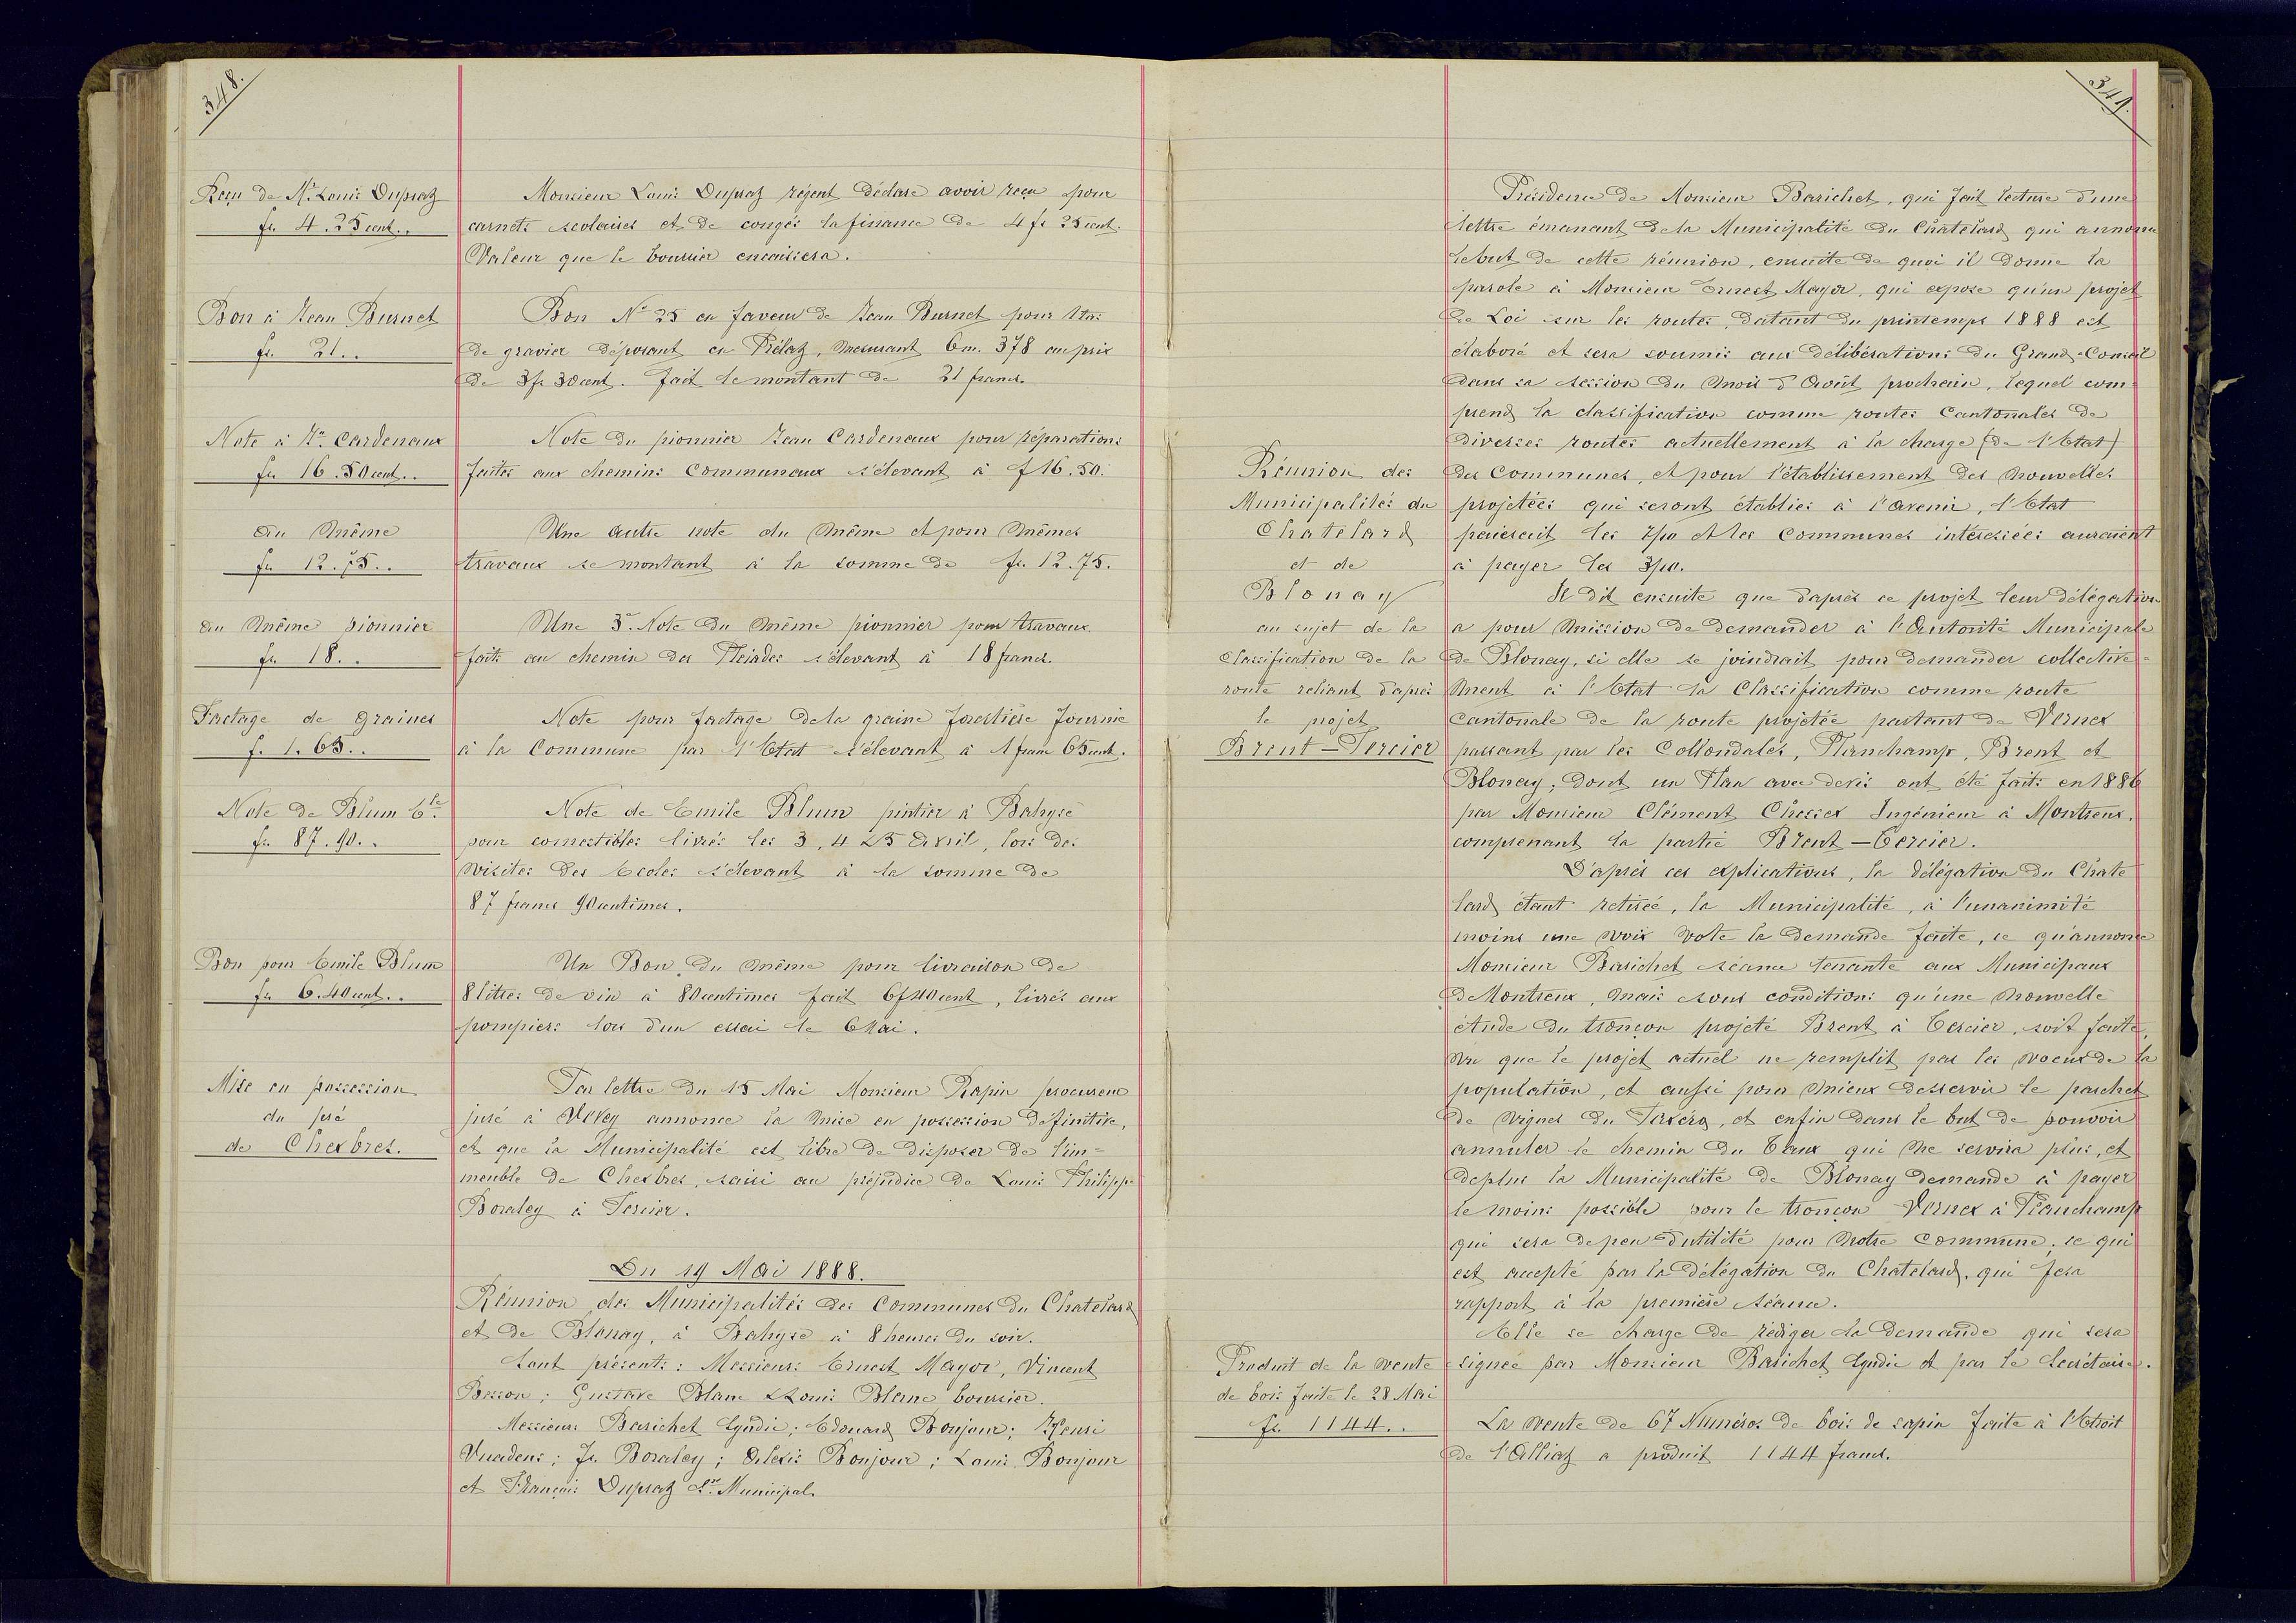 348.
Reçu de Mr. Louis Dupraz
fr. 4.25 cent..
Monsieur Louis Dupraz régent déclare avoir reçu pour
carnets scolaires et de congés la finance de 4 fr 25 cent.
Valeur que le boursier encaissera.
Bon à Jean Burnet
fr. 21..
Bon No 25 en faveur de Jean Burnet pour
de gravier déposant en Prélaz, mesurant 6 m. 378 au prix
de 3 fr 30 cent. fait le montant de 21 francs.
Note à Jn. Cardenaux
fr. 16.50 cent..
Note du pionnier Jean Cardenaux pour réparations
faites aux chemins Communaux s'élevant à f 16.50.
du même
fr 12.75..
Une autre note du même et pour mêmes
travaux se montant à la somme de fr. 12.75.
du même pionnier
fr. 18..
Une 3e. Note du même pionnier pour travaux
faits au chemin des Pleiades s'élevant à 18 francs.
Factage de graines
f. 1.65..
Note pour factage de la graine forestière fournie
à la Commune par l'Etat s'élevant à 1 franc 65 cent.
Note de Blum Ele.
fr. 87.90..
Note de Emile Blum pintier à Bahyse
pour comestibles livrés les 3, 4 & 5 Avril, lors des
visites des Ecoles s'élevant à la somme de
87 francs 90 centimes.
Bon pour Emile Blum
fr 6.40 cent..
Un Bon du même pour livraison de
8 litres de vin à 80 centimes fait 6 f 40 cent, livrés aux
pompiers lors d'un essai le 6 Mai.
Mise en possession
du pré
de Chexbres.
Par lettre du 15 Mai Monsieur Rapin procureur
juré à Vevey annonce la mise en possession définitive,
et que la Municipalité est libre de disposer de l'im-
meuble de Chexbres, saisi au préjudice de Louis Philippe
Boraley à Tercier.
Du 19 Mai 1888.
Réunion des Municipalités des Communes du Chatelard
et de Blonay, à Bahyse à 8 heures du soir.
Sont présents: Messieurs Ernest Mayor, Vincent
Besson; Gustave Blanc & Louis Blanc boursier.
Messieurs Barichet Syndic; Edouard Bonjour; Henri
Vuadens; Fs. Boraley; Alexis Bonjour; Louis Bonjour
et François Dupraz Sre. Municipal.
349.
Présidence de Monsieur Barichet, qui fait lecture d'une
lettre émanant de la Municipalité du Châtelard qui annonce
le but de cette réunion, ensuite de quoi il donne la
parole à Monsieur Ernest Mayor, qui expose qu'un projet
de Loi sur les routes, datant du printemps 1888 est
élaboré et sera soumis aux délibérations du Grand-Conseil
dans sa session du mois d'Août prochain, lequel com-
prend la classification comme routes Cantonales de
diverses routes actuellement à la charge (de l'Etat)
des Communes, et pour l'établissement des nouvelles
projetées qui seront établies à l'avenir, l'Etat
paierait les 7/10 et les Communes intéressées auraient
à payer les 3/10.
Réunion des
Municipalités du
Chatelard
et de
Blonay
au sujet de la
Classification de la
route reliant d'après
le projet
Brent-Tercier
Il dit ensuite que d'après ce projet leur délégation
a pour mission de demander à l'Autorité Municipale
de Blonay, si elle se joindrait pour demander collective-
ment à l'Etat la Classification comme route
Cantonale de la route projetée partant de Vernex
passant par les Collondales, Planchamp, Brent et
Blonay; dont un Plan avec devis ont été faits en 1886
par Monsieur Clément Chessex Ingénieur à Montreux,
comprenant la partie Brent-Tercier.
D'après ces explications, la délégation du Chate
lard étant retirée, la Municipalité, à l'unanimité
moins une voix vote la demande faite, ce qu'annonce
Monsieur Barichet séance tenante aux Municipaux
de Montreux, mais sous conditions qu'une nouvelle
étude du tronçon projeté Brent à Tercier, soit faite,
vu que le projet actuel ne remplit pas les voeux de la
population, et aussi pour mieux desservir le parchet
de vignes du, et enfin dans le but de pouvoir
annuler le chemin du qui ne servira plus, et
deplus la Municipalité de Blonay demande à payer
le moins possible pour le tronçon Vernex à Planchamp
qui sera de peu d'utilité pour notre Commune; ce qui
est accepté par la délégation du Chatelard, qui fera
rapport à la première séance.
Elle se charge de rédiger la demande qui sera
signée par Monsieur Barichet Syndic et par le Secrétaire.
Produit de la vente
de bois faite le 28 Mai
fr. 1144..
La vente de 67 Numéros de bois de sapin faite à l'Etroit
de l'Alliaz a produit 1144 francs.